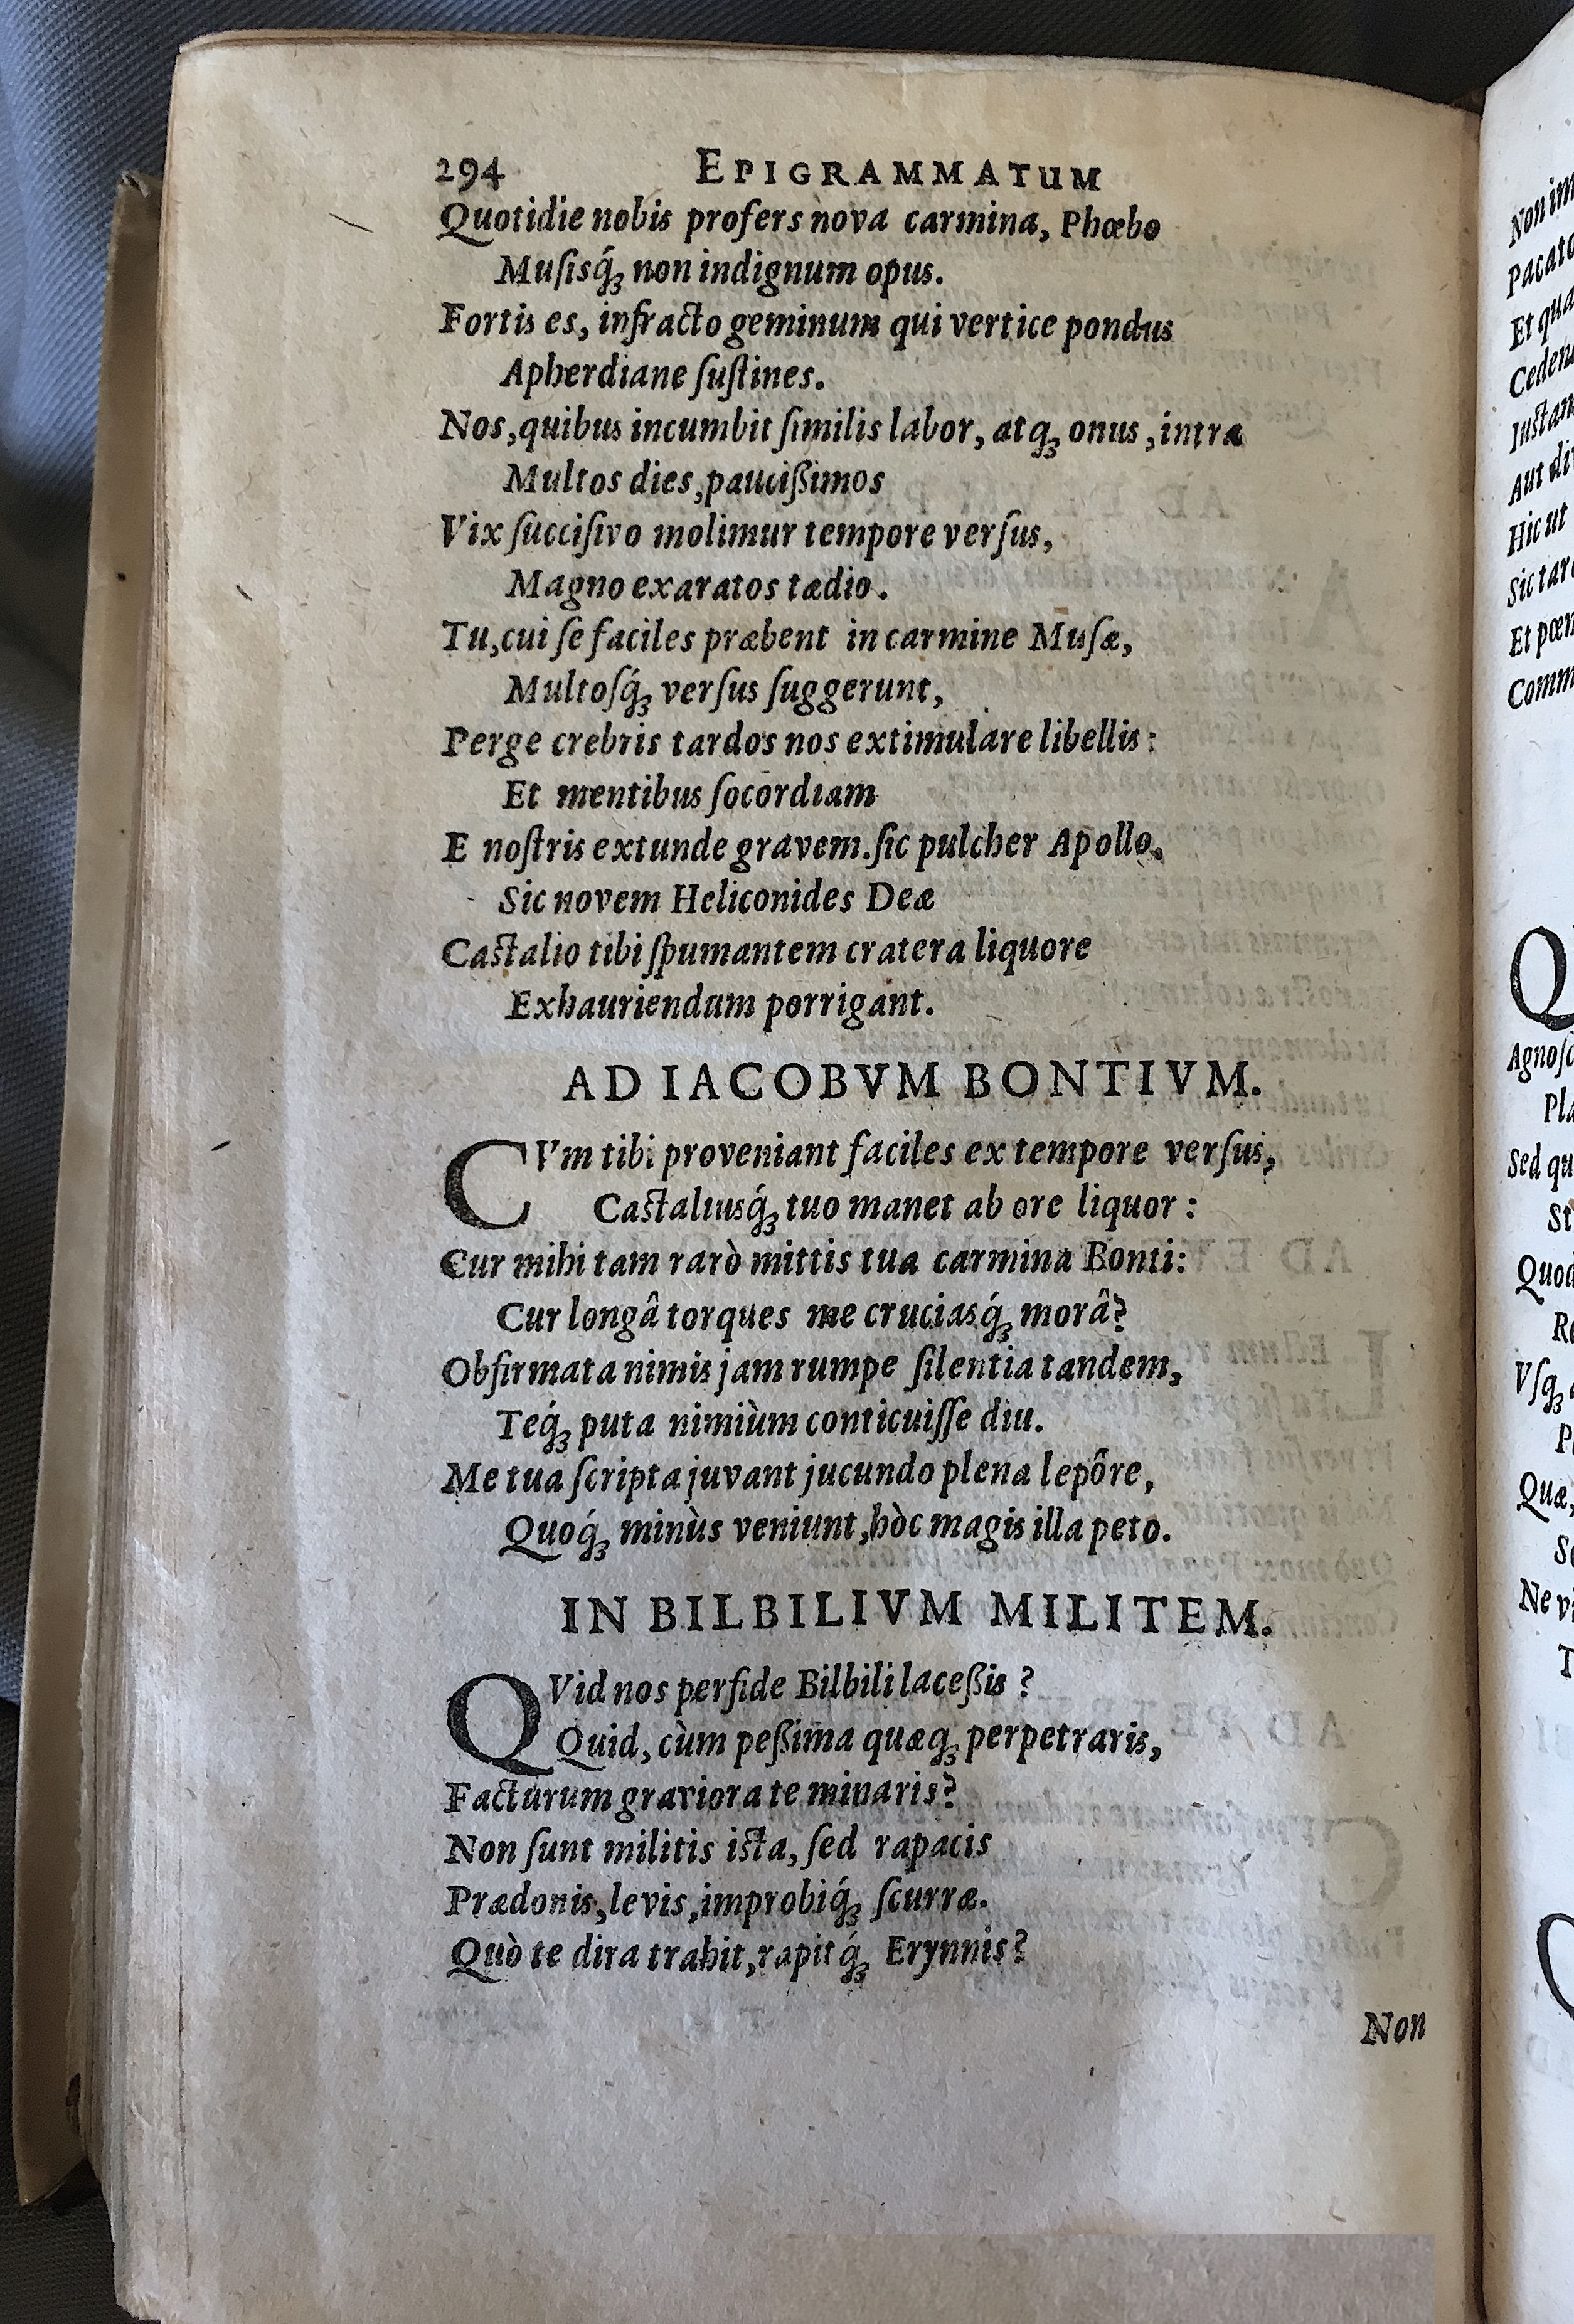 294 EPIGRAMMATUM
Quotidie nobis profers nova carmina, Phœbo
Muſisq́ꝫ non indignum opus.
Fortis es, infracto geminum qui vertice pondus
Apherdiane ſuſtines.
Nos, quibus incumbit ſimilis labor, atqꝫ onus, intra
Multos dies, paucißimos
Vix ſucciſivo molimur tempore verſus,
Magno exaratos tædio.
Tu, cui ſe faciles præbent in carmine Muſæ,
Multoſq́ꝫ verſus ſuggerunt,
Perge crebris tardos nos extimulare libellis:
Et mentibus ſocordiam
E noſtris extunde gravem. ſic pulcher Apollo,
Sic novem Heliconides Deæ
Caſtalio tibi ſpumantem cratera liquore
Exhauriendum porrigant.
AD IACOBVM BONTIVM.
CVm tibi proveniant faciles ex tempore verſus,
Caſtaliusq́ꝫ tuo manet ab ore liquor:
Cur mihi tam rarò mittis tua carmina Bonti:
Cur longâ torques me cruciasq́ꝫ morâ?
Obfirmata nimis jam rumpe ſilentia tandem,
Teq́ꝫ puta nimiùm conticuiſſe diu.
Me tua ſcripta juvant jucundo plena lepôre,
Quoq́ꝫ minùs veniunt, hòc magis illa peto.
IN BILBILIVM MILITEM.
QVid nos perfide Bilbili laceßis?
Quid, cùm peßima quæqꝫ perpetraris,
Facturum graviora te minaris?
Non ſunt militis iſta, ſed rapacis
Prædonis, levis, improbiq́ꝫ ſcurræ.
Quò te dira trahit, rapitq́ꝫ Erynnis?
Non
Et
Hic ut
Sed
Vſqꝫ
Quæ,